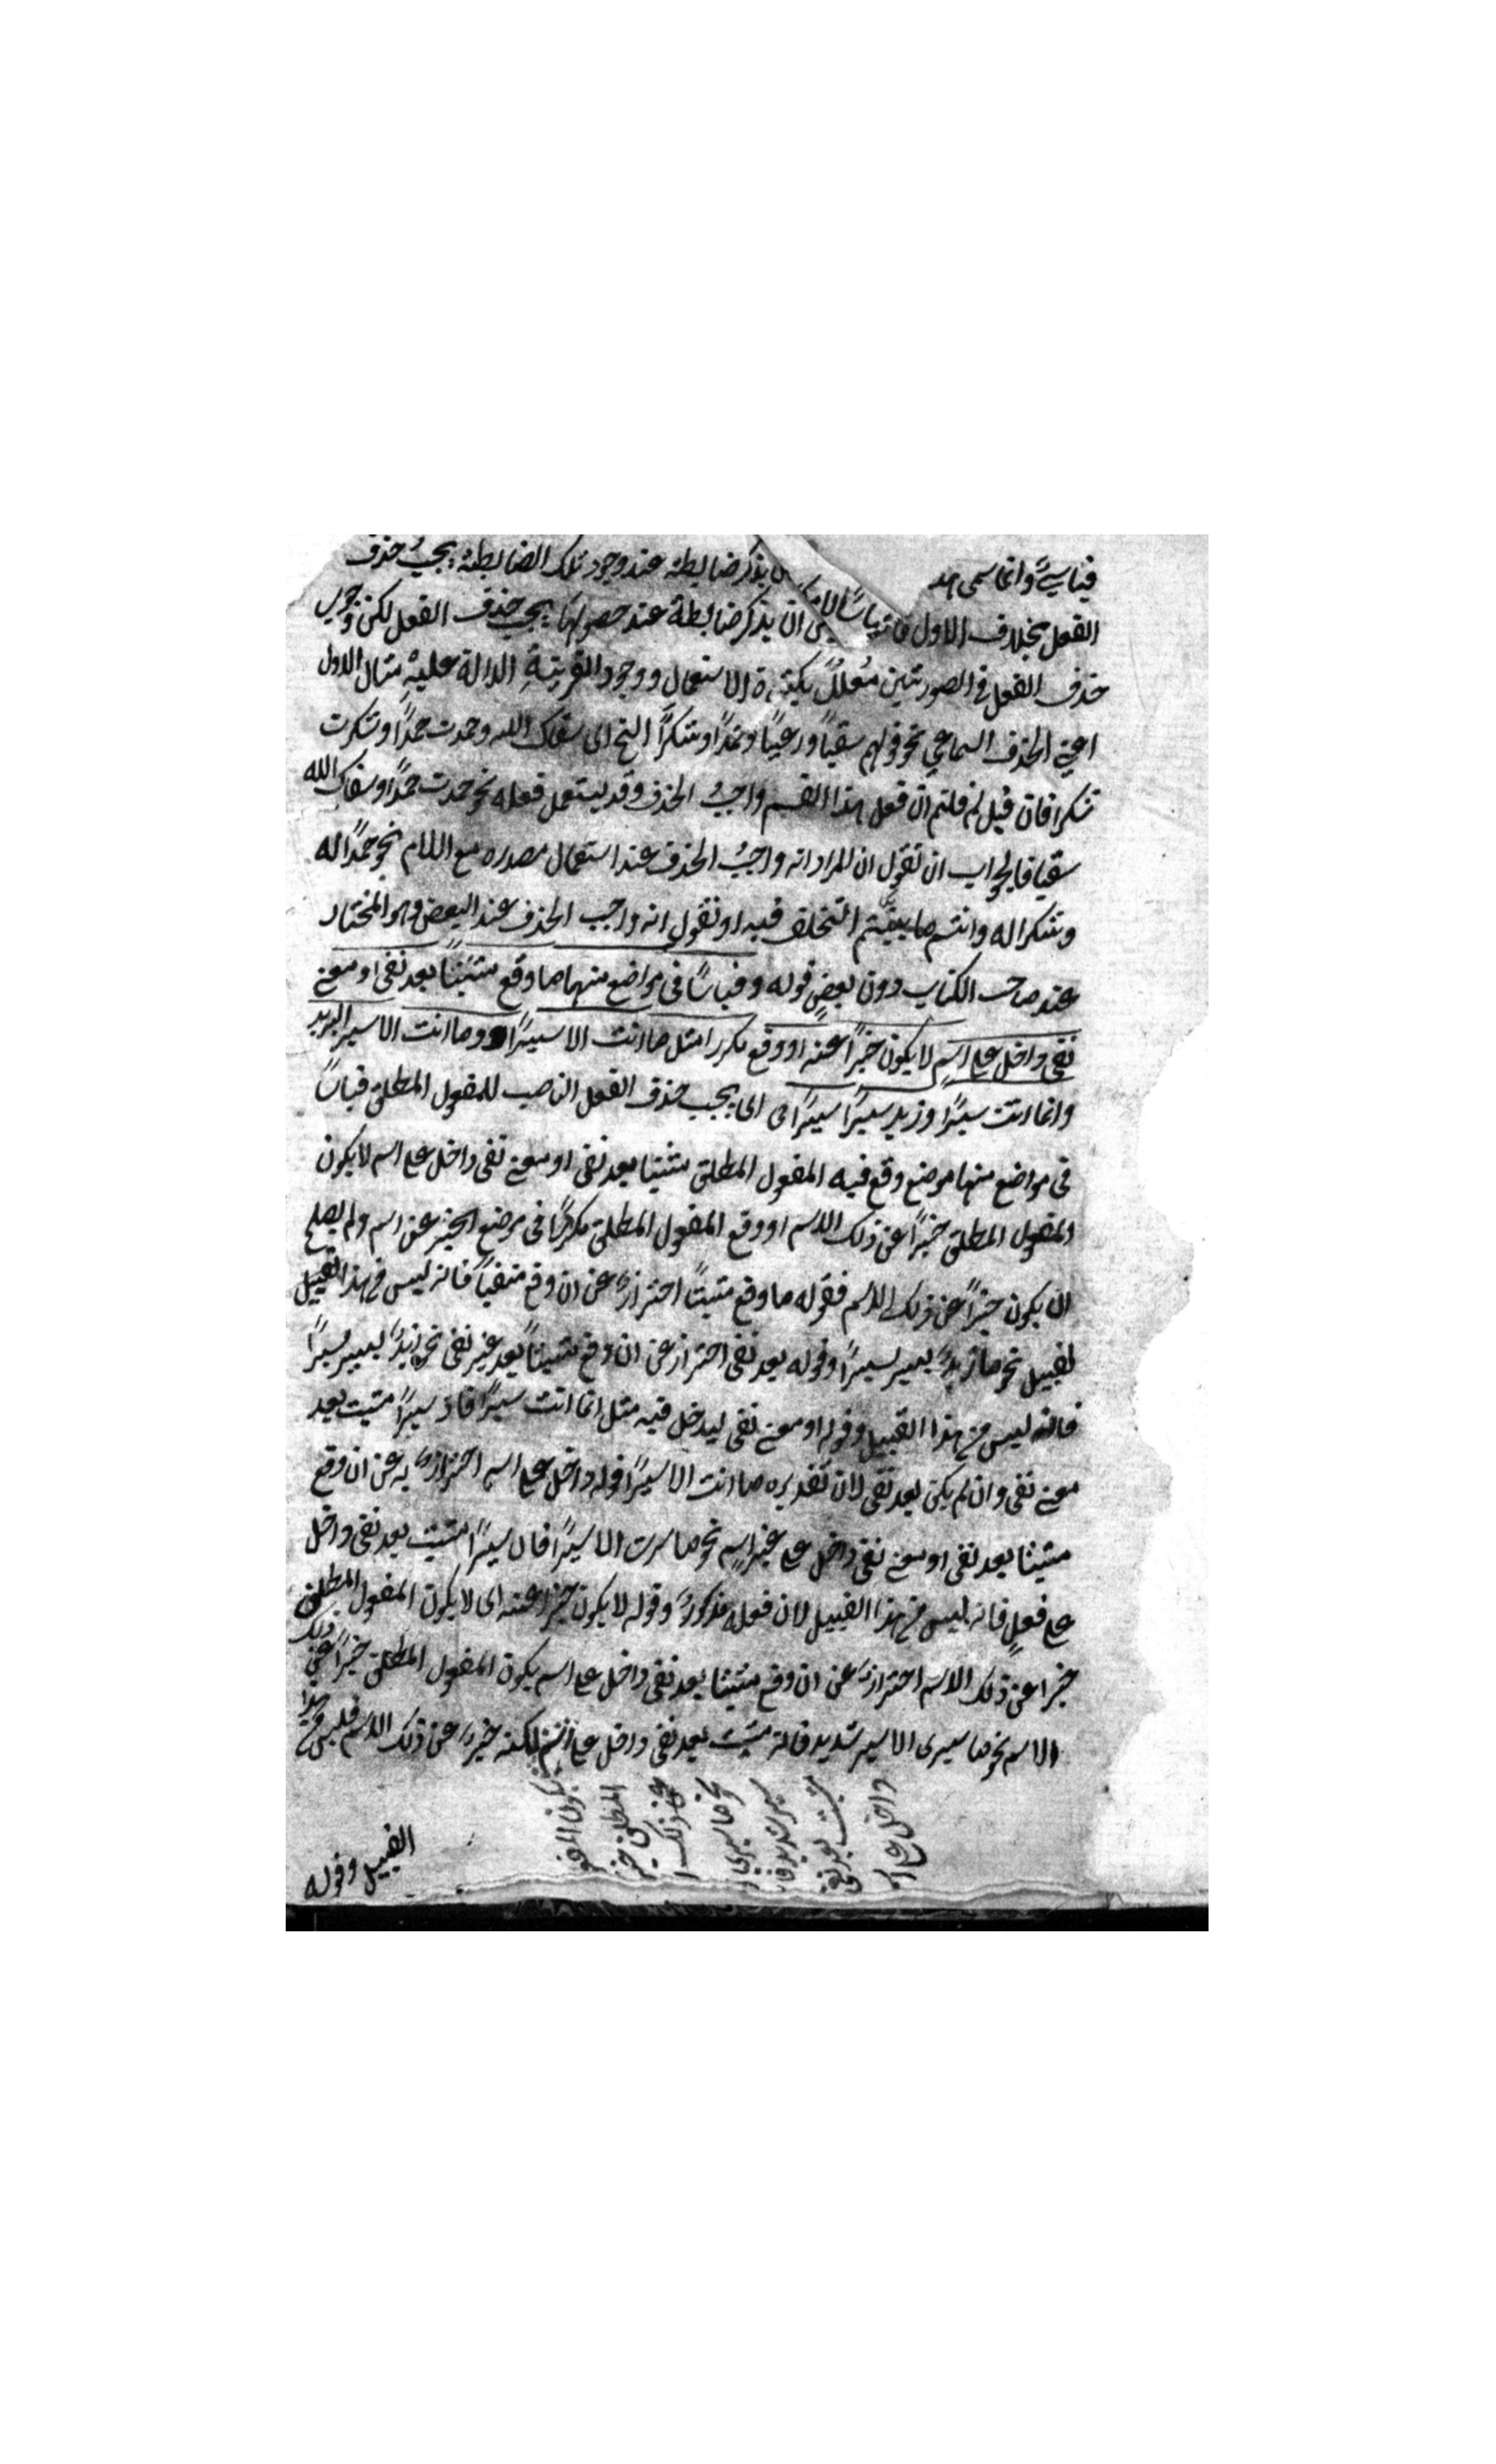 قياسيًّا وانما سمى هذ يذكر ضابطة عند وجود تلك الضابطة يجبُ حذف
الفعل بخلاف الاول قياسًا ان يذكر ضابطة عند حصولها يجب حذف الفعل لكن وجوب
حذف الفعل فى الصورتين مُعللٌ بكثرة الاستعمال ووجود القرينةِ الدالة عليهِ مثال الاول
اعنى الحذف السماعي نحو قولهم سقيًا ورعيًا وحمدًا وشكرًا الخ اى سقاك الله وحمدت حمدًا وشكرت
شكرا فان قيل لم قلتم ان فعل هذا القسم واجبُ الحذف وقد يستعمل فعله نحو حمدت حمدًا وسقاك الله
سقيا فالجواب ان نقول ان المراد انه واجبُ الحذف عند استعمال مصدره مع اللام نحو حمدًا له
وشكرا له وانتم ما بيّنتم التخلف فيه او نقول انه واجب الحذف عند البعض وهو المختار
عند صاحب الكتاب دون بعضٍ قوله وقياسًا فى مواضع منهما ما وقع مثبتًا بعد نفى او معنى
نفى داخل على اسمٍ لا يكون خبرًا عنه او وقع مكررا مثل ما انت الا سيرًا وما انت الا سير البريد
وانما انت سيرًا وزيد سيرًا سيرًا اى يجب حذف الفعل الناصب للمفعول المطلق قياسًا
فى مواضع منها موضع وقع فيه المفعول المطلق مثبتا بعد نفى او معنى نفى داخل على اسم لا يكون
المفعول المطلق خبرًا عن ذلك الاسم او وقع المفعول المطلق مكررًا فى موضع الخبر عن اسم ولم يصلح
ان يكون خبرًا عن ذلك الاسم فقوله ما وقع مثبتًا احترازٌ عن ان وقع منفيًا فانه ليس من هذا القبيل
لقبيل نحو ما زيدٌ يسير سيرًا وقوله بعد نفى احتراز عن ان وقع مثبتًا بعد غير نفى نحو زيدٌ يسير سيرًا
فانه ليس من هذا القبيل وقوله او معنى نفى ليدخل فيه مثل انما انت سيرًا فان سيرًا مثبت بعد
معنى نفى وان لم يكن بعد نفى لان تقديره ما انت الا سيرًا قوله داخل على اسم احترازٌ به عن ان وقع
مثبتا بعد نفى او معنى نفى داخل على غير اسمٍ نحو ما سرت الا سيرًا فان سيرًا مثبت بعد نفى داخل
على فعلٍ فانه ليس من هذا القبيل لان فعله مذكورٌ وقوله لا يكون خبرا عنه اى لا يكون المفعول المطلق
خبرا عن ذلك الاسم احترازٌ عن ان وقع مثبتا بعد نفى داخل على اسم يكون المفعول المطلق خبرًا عن ذلك
الاسم نحو ما سيرى الا سير شديد فانه مثبت بعد نفى داخل على اسم لكنه خبرٌ عن ذلك الاسم فليس من هذا
القبيل وقوله
يكون المفعو
المطلق خبر
عن ذلك ا
نحو ما سيرى ا
سير شديد فا
مثبت بعد نفى
داخل على ا